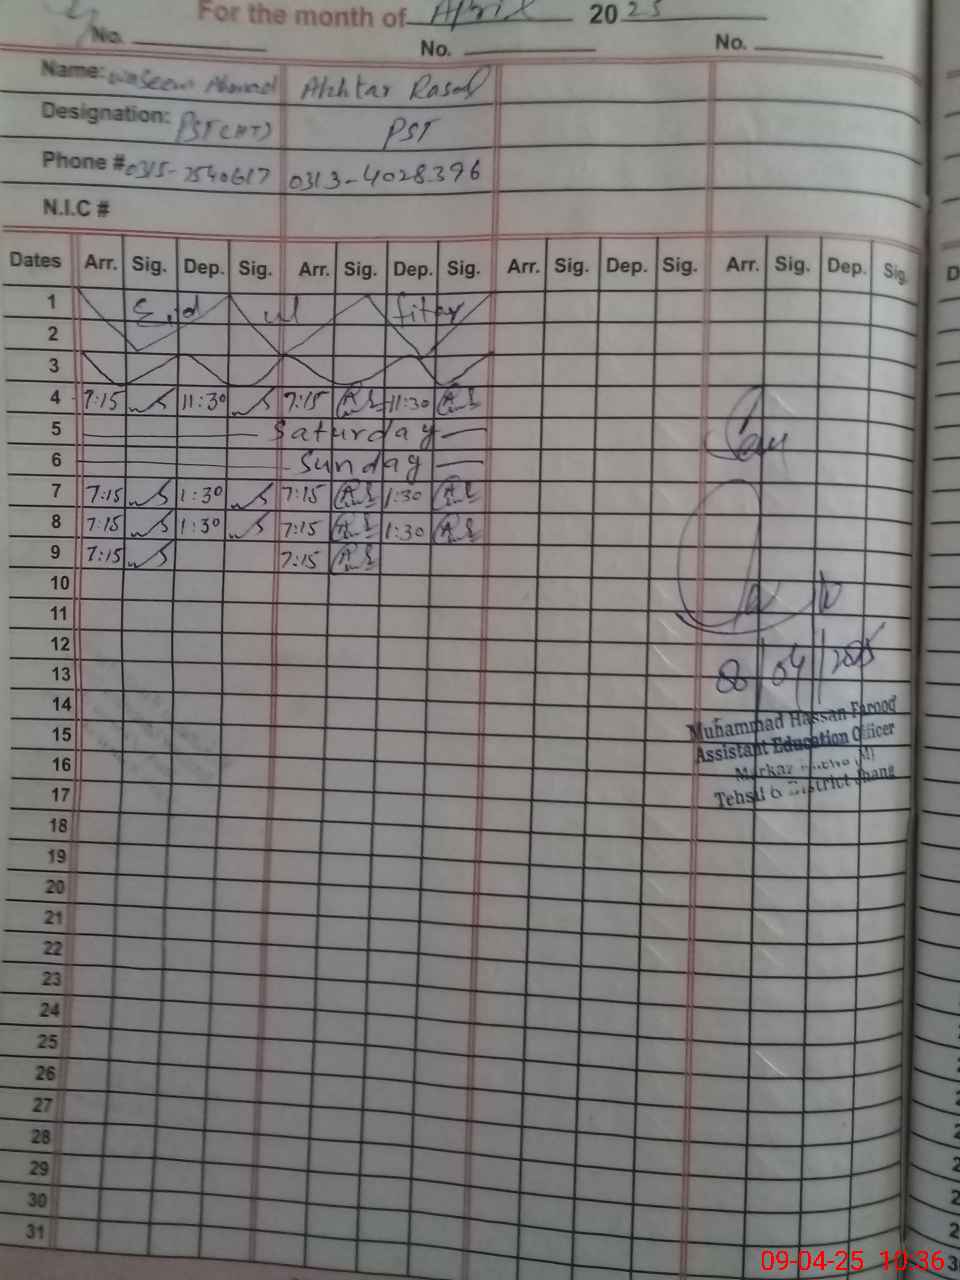 For the month of April 2025
No. No. No.
Name: Waseem Ahmad Akhtar Rasool
Designation: PST(HT) PST
Phone # 0315-2540617 0313-4028396
N.I.C #
Dates Arr. Sig. Dep. Sig. Arr. Sig. Dep. Sig. Arr. Sig. Dep. Sig. Arr. Sig. Dep. Sig.
1 Eid ul fitar
2
3
4 7:15 11:30 7:15 11:30
5 Saturday
6 Sunday
7 7:15 1:30 7:15 1:30
8 7:15 1:30 7:15 1:30
9 7:15 7:15
10
11
12
13
14
15
16
17
18
19
20
21
22
23
24
25
26
27
28
29
30
31
08/04/2025
Muhammad Hassan Farooq
Assistant Education Officer
Markaz
Tehsil & District Jhang
09-04-25 10:36